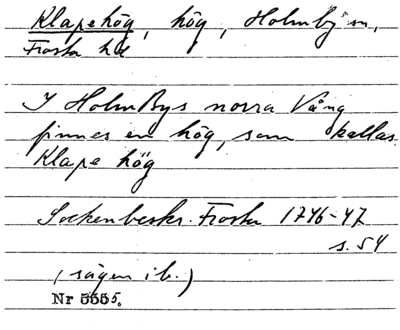 Klapehög, hög, Holmby sn,
Frosta hd
I HolmBys norra Vång
finnes en hög, som kallas
Klape hög
Sockenbeskr. Frosta 1746-47
s. 54
(sägen ib.)
Nr 5555.